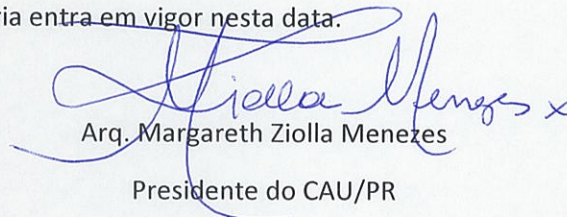 ia entra em vigor nesta data.
Ziolla Menezes
Arq. Margareth Ziolla Menezes
Presidente do CAU/PR